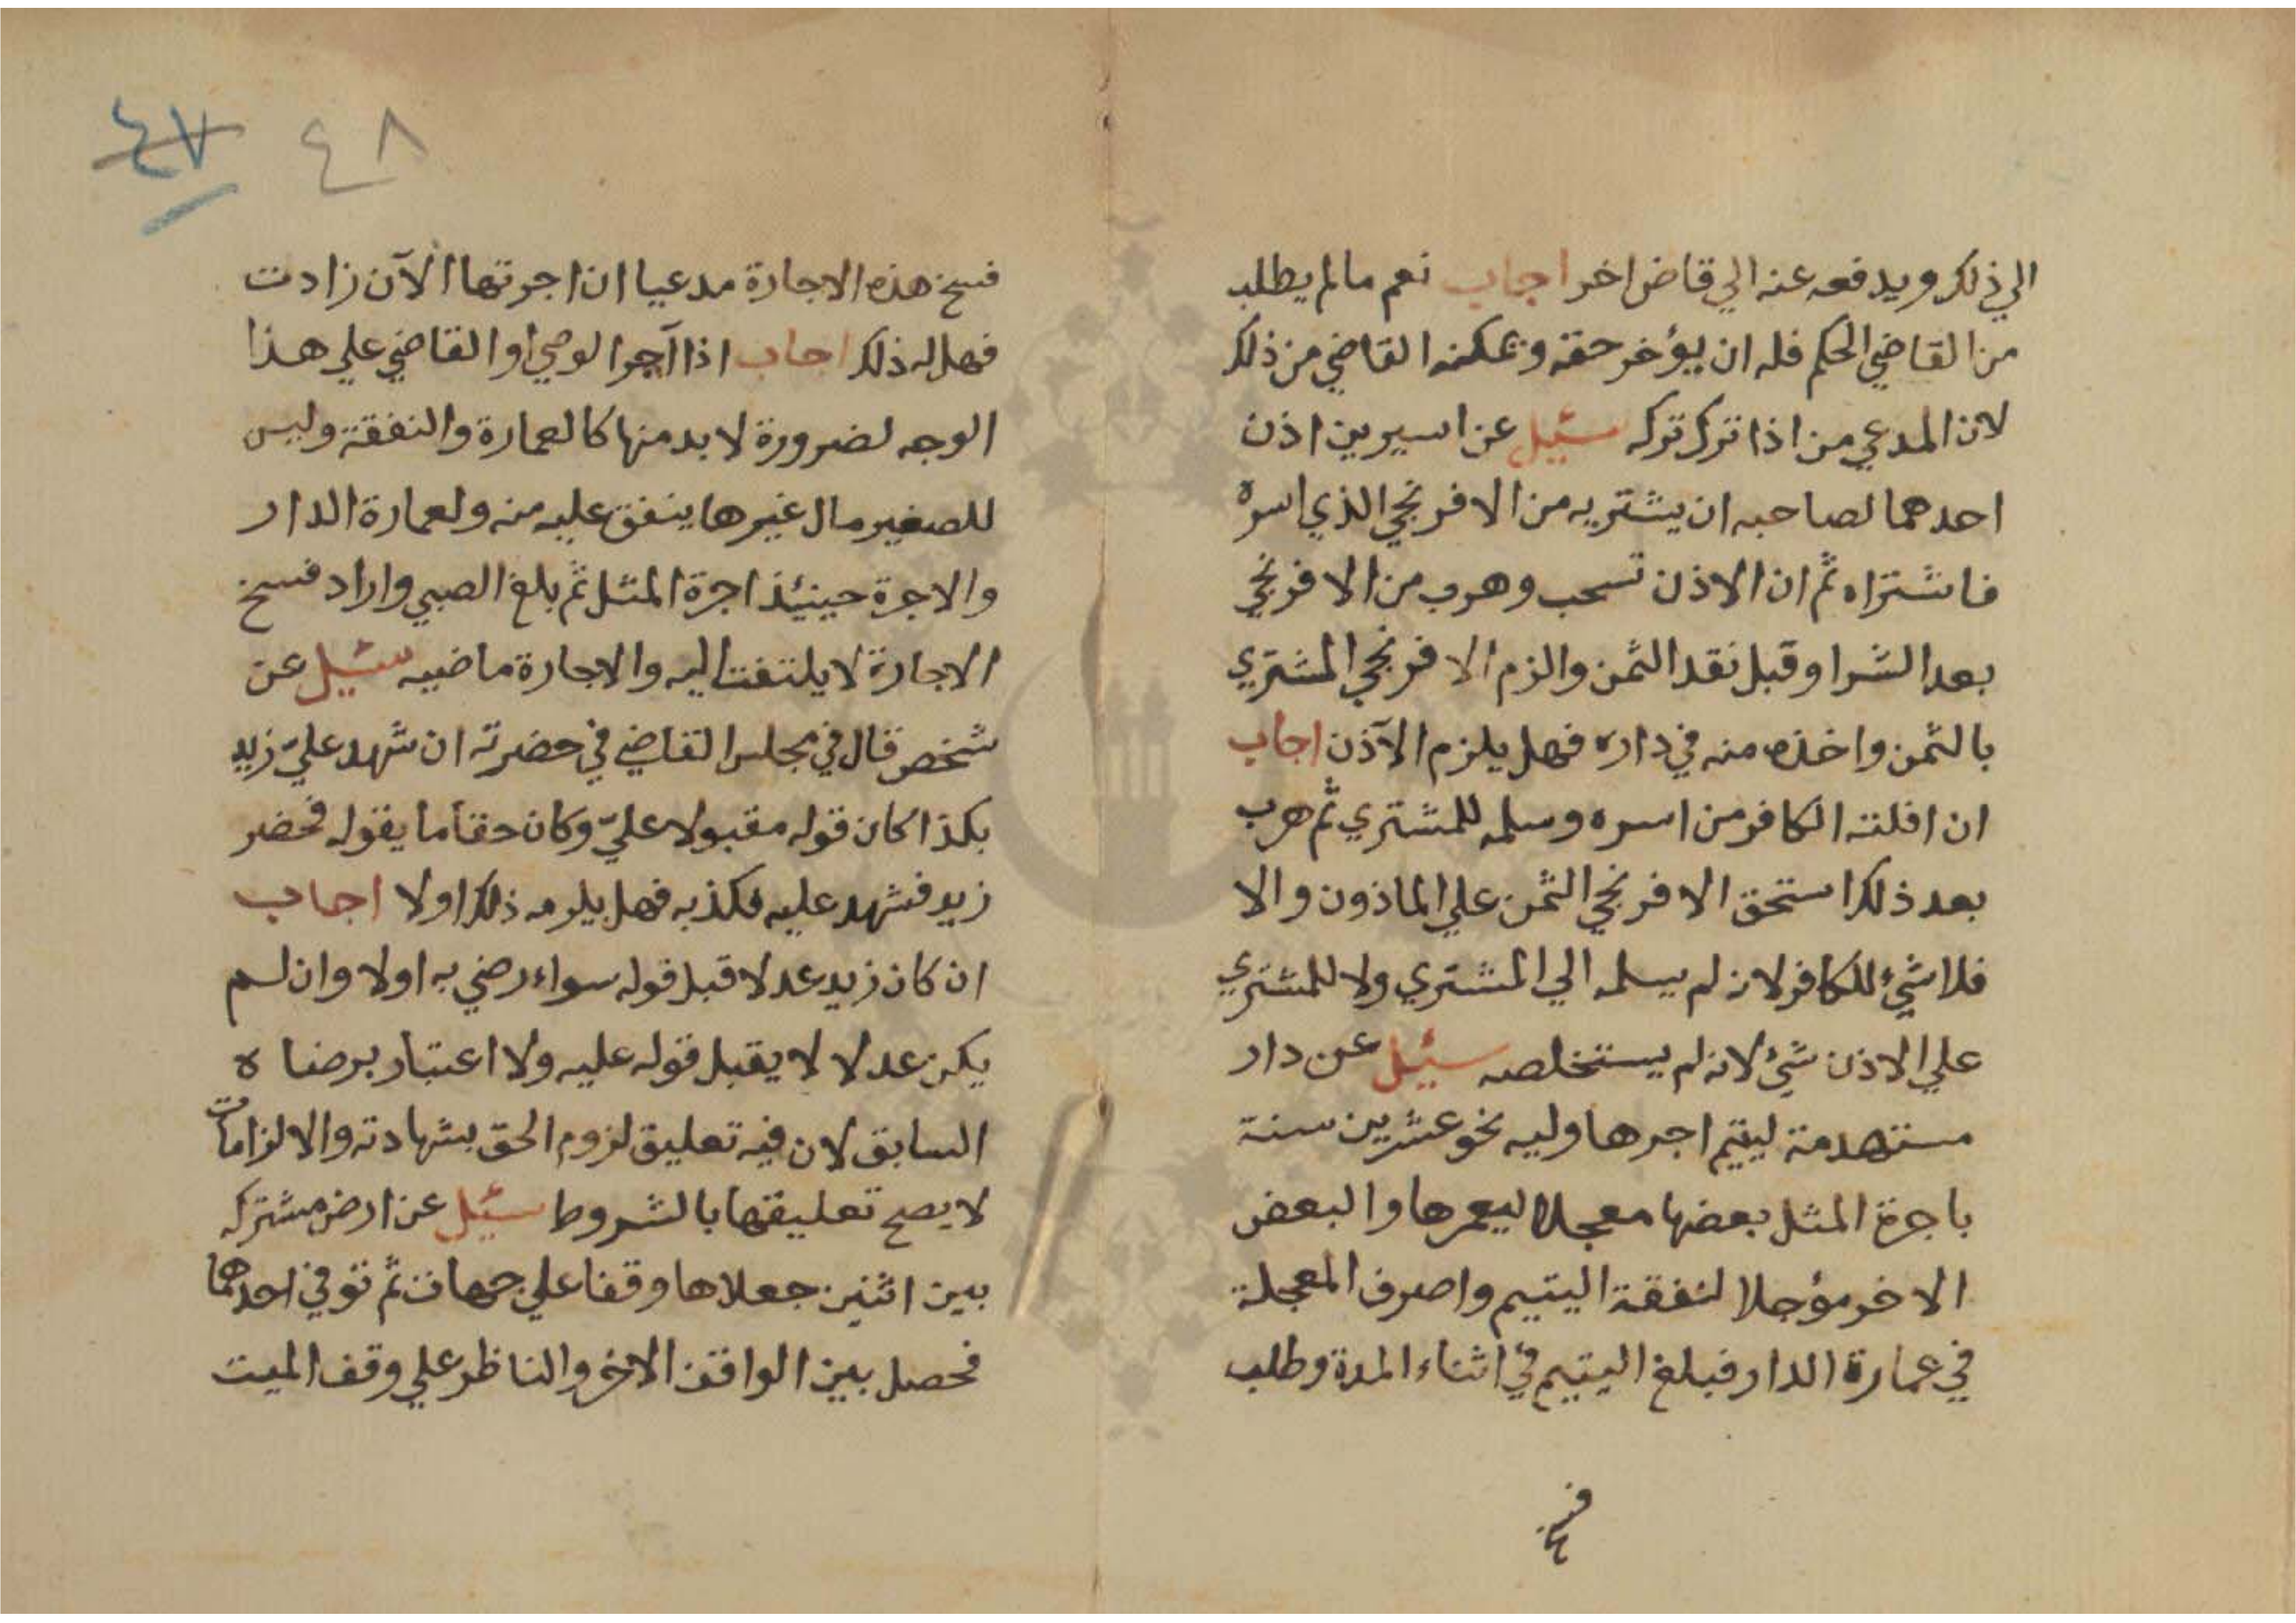 الي ذلك ويدفعه عنه الي قاض اخر اجاب نعم مالم يطلب
من القاضي الحكم فله ان يؤخر حقه ويمكنه القاضي من ذلك
لان المدعي من اذا ترك تركه سئيل عن اسيرين اذن
احدهما لصاحبه ان يشتريه من الافرنجي الذي اسره
فاشتراه ثم ان الاذن تسحب وهرب من الافرنجي
بعد الشرا وقبل نقد الثمن والزم الافرنجي المشتري
بالثمن واخذه منه في داره فهل يلزم الآذن اجاب
ان افلته الكافر من اسره وسلمه للمشتري ثم هرب
بعد ذلك استحق الافرنجي الثمن علي الماذون والا
فلا شيء للكافر لانه لم يسلمه الي المشتري ولا للمشتري
علي الاذن شيء لانه لم يستخلصه سئيل عن دار
مستهدمة ليتيم اجرها وليه نحو عشرين سنة
باجرة المثل بعضها معجلا ليعمرها والبعض
الاخر مؤجلا لنفقة اليتيم واصرف المعجلة
في عمارة الدار فبلغ اليتيم في اثناء المدة وطلب
فسخ
٤٨ ٤٧
فسخ هذه الاجارة مدعيا ان اجرتها الآن زادت
فهل له ذلك اجاب اذا آجر الوصي او القاضي علي هذا
الوجه لضرورة لا بد منها كالعمارة والنفقة وليس
للصغير مال غيرها ينفق عليه منه ولعمارة الدار
والاجرة حينئذ اجرة المثل ثم بلغ الصبي واراد فسخ
الاجارة لا يلتفت اليه والاجارة ماضيه سئيل عن
شخص قال في مجلس القاضي في حضرته ان شهد عليّ زيد
بكذا كان قوله مقبولا عليّ وكان حقا ما يقوله فحضر
زيد فشهد عليه فكذبه فهل يلزمه ذلك اولا اجاب
ان كان زيد عدلا قبل قوله سواء رضي به اولا وان لم
يكن عدلا لا يقبل قوله عليه ولا اعتبار برضاه
السابق لان فيه تعليق لزوم الحق بشهادته والالزامات
لا يصح تعليقها بالشروط سئيل عن ارض مشتركه
بين اثنين جعلاها وقفا علي جهات ثم توفي احدهما
فحصل بين الواقف الاخر والناظر علي وقف الميت